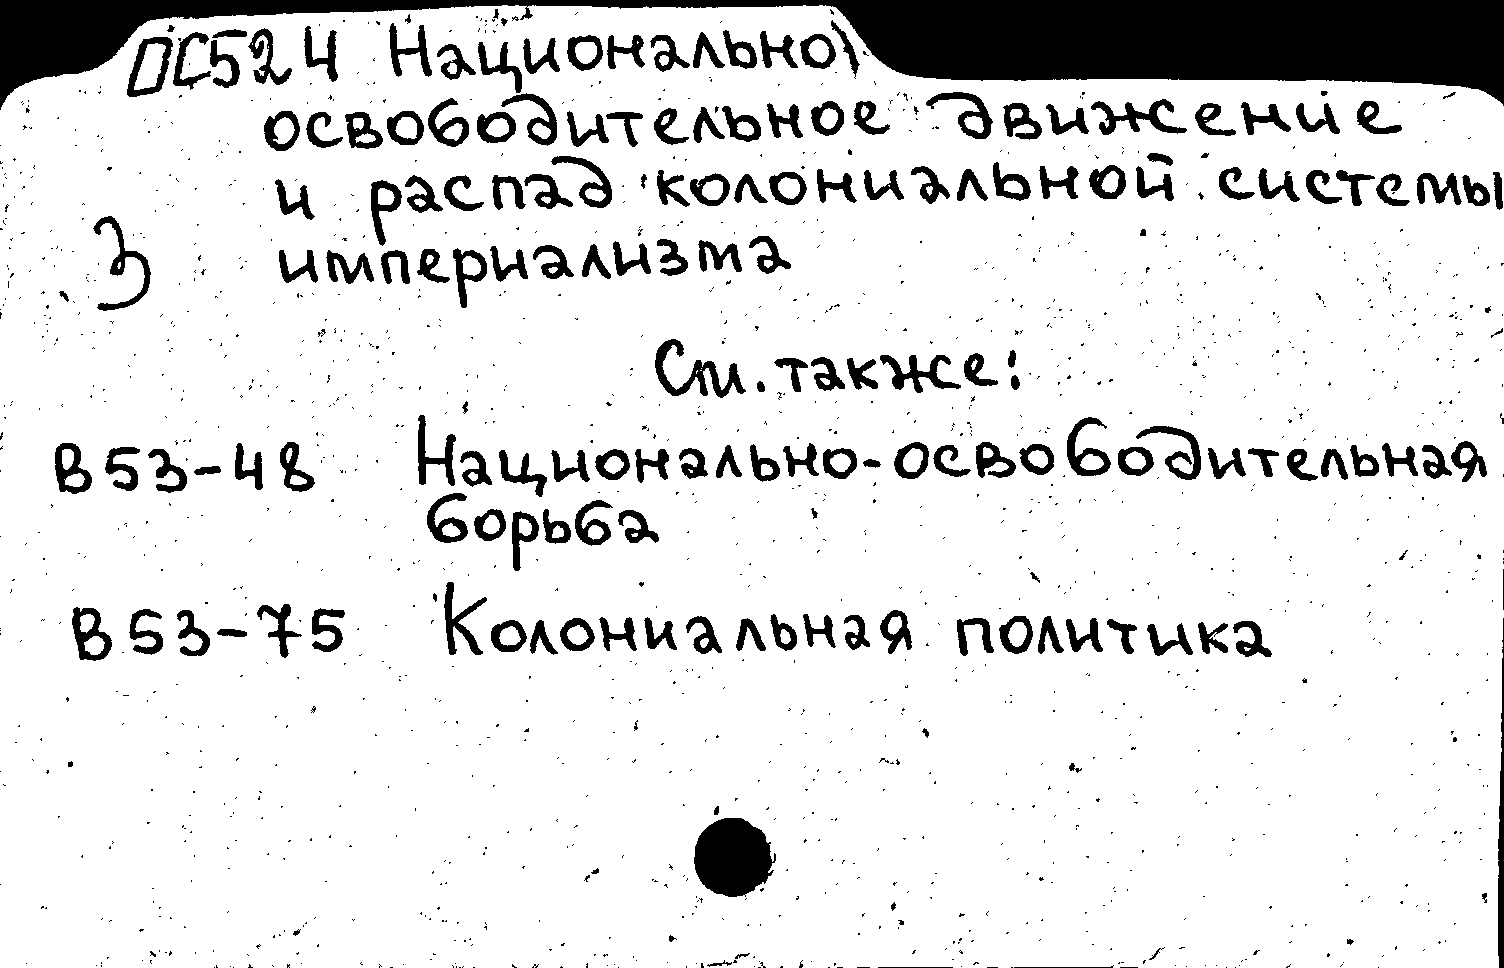 ОС524 Национально
освободительное движение
и распад колониальной системы
З империализма
См. также:
В53-48 Национально-освободительная
борьба
В53-75 Колониальная политика